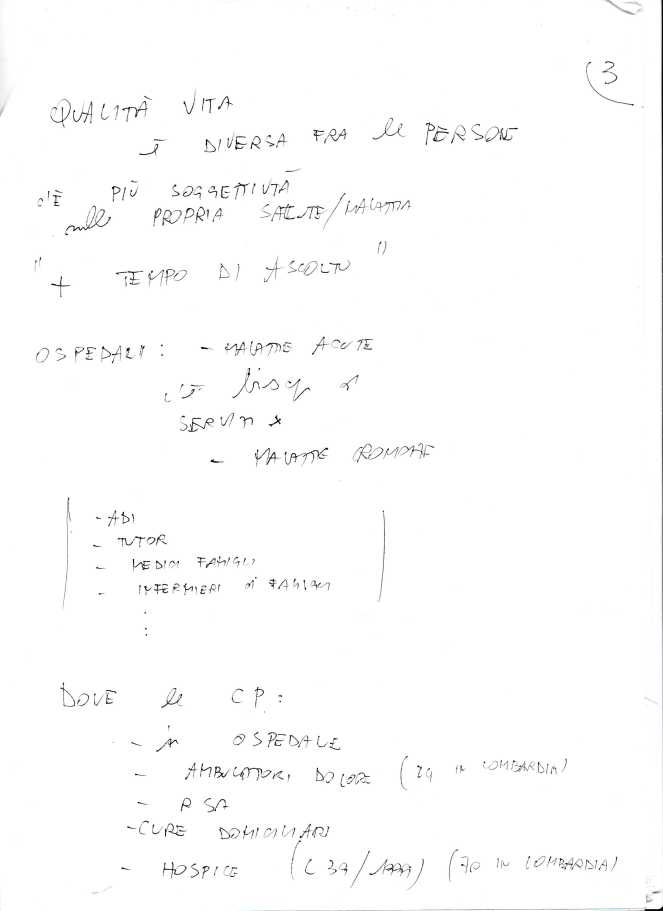 3
QUALITÀ VITA
È DIVERSA FRA le PERSONE
C'È PIÙ SOGGETTIVITÀ
sulla PROPRIA SALUTE/MALATTIA
" + TEMPO DI ASCOLTO "
OSPEDALI: - MALATTIE ACUTE
C'È bisogno di
SERVIZI x
- MALATTIE CRONICHE
- ADI
- TUTOR
- MEDICI FAMIGLI
- INFERMIERI di FAMIGLI
:
:
DOVE le CP:
- in OSPEDALE
- AMBULATORI DOLORE (29 IN LOMBARDIA)
- RSA
- CURE DOMICILIARI
- HOSPICE (L 39/1999) (70 IN LOMBARDIA)